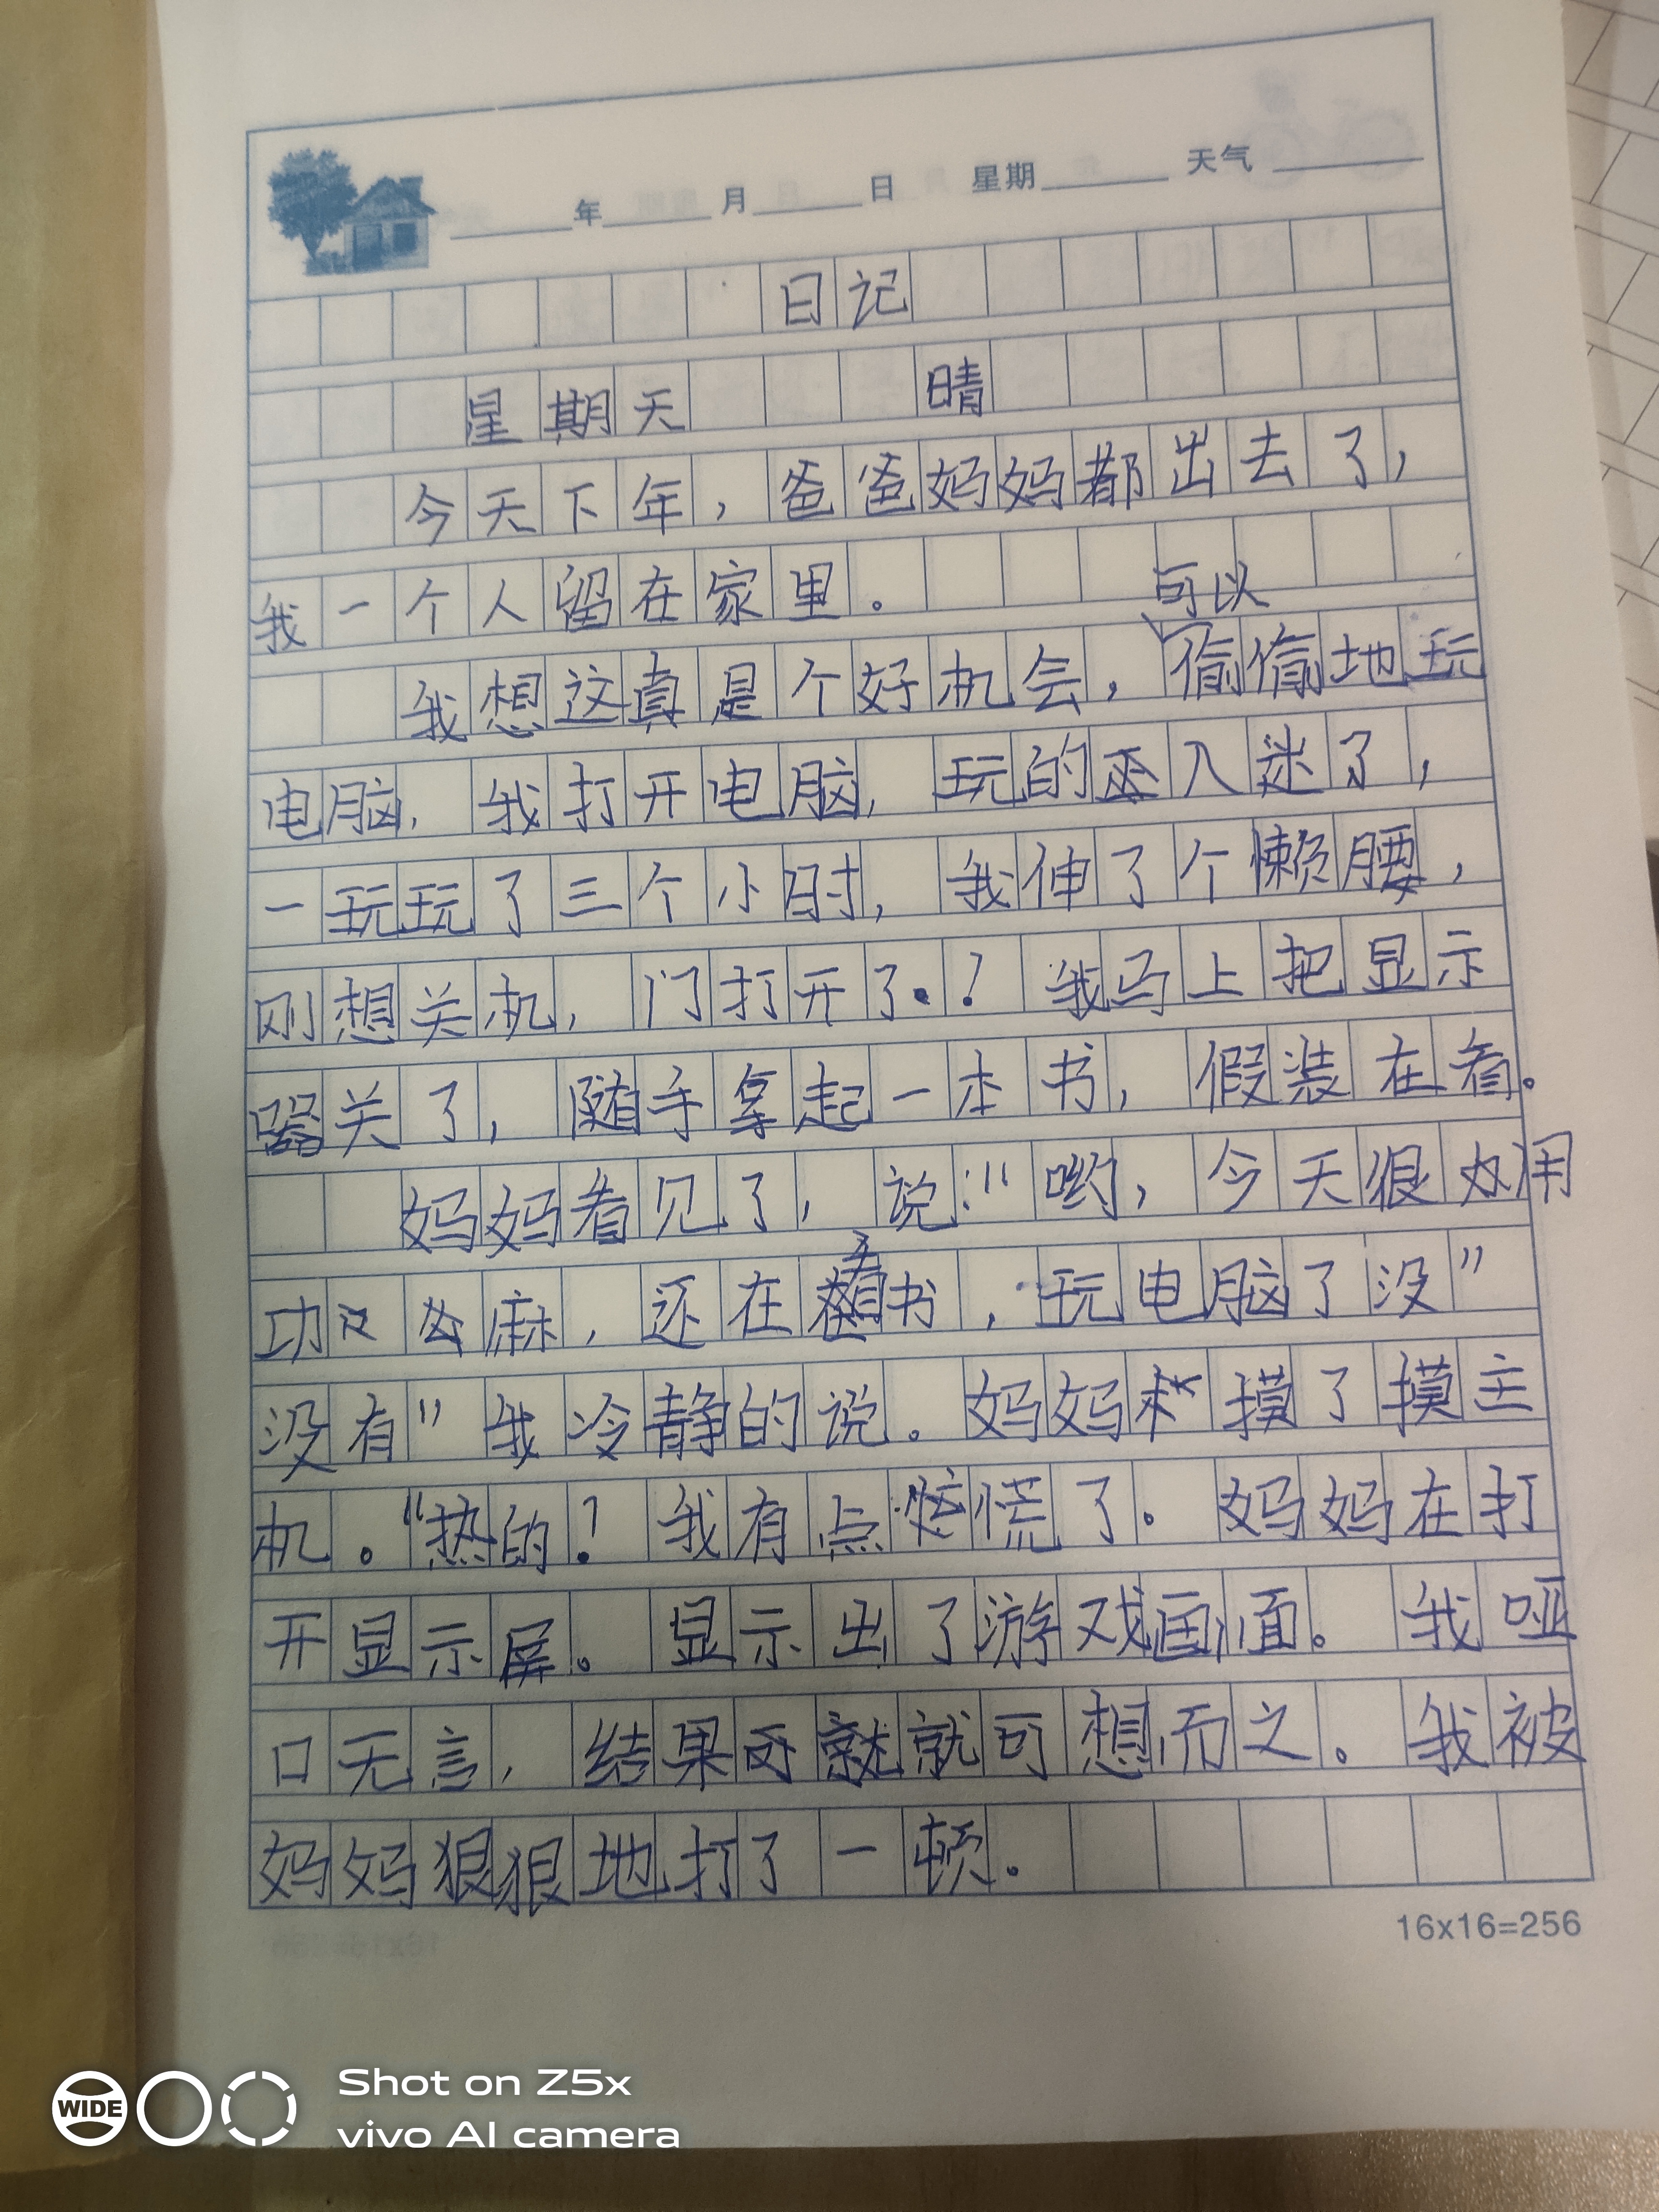 年 月 日 星期 天气
日记
星期天 晴
今天下年，爸爸妈妈都出去了，
我一个人留在家里。
可以
我想这真是个好机会，偷偷地玩
电脑，我打开电脑，玩的入迷了，
一玩玩了三个小时，我伸了个懒腰，
刚想关机，门打开了.！我马上把显示
器关了，随手拿起一本书，假装在看。
妈妈看见了，说："哟，今天很用
功么麻，还在看书，玩电脑了没"
没有"我冷静的说。妈妈摸了摸主
机。"热的！我有点慌了。妈妈在打
开显示屏。显示出了游戏画面。我哑
口无言，结果就可想而之。我被
妈妈狠狠地打了一顿。
16x16=256
WIDE
Shot on Z5x
vivo AI camera